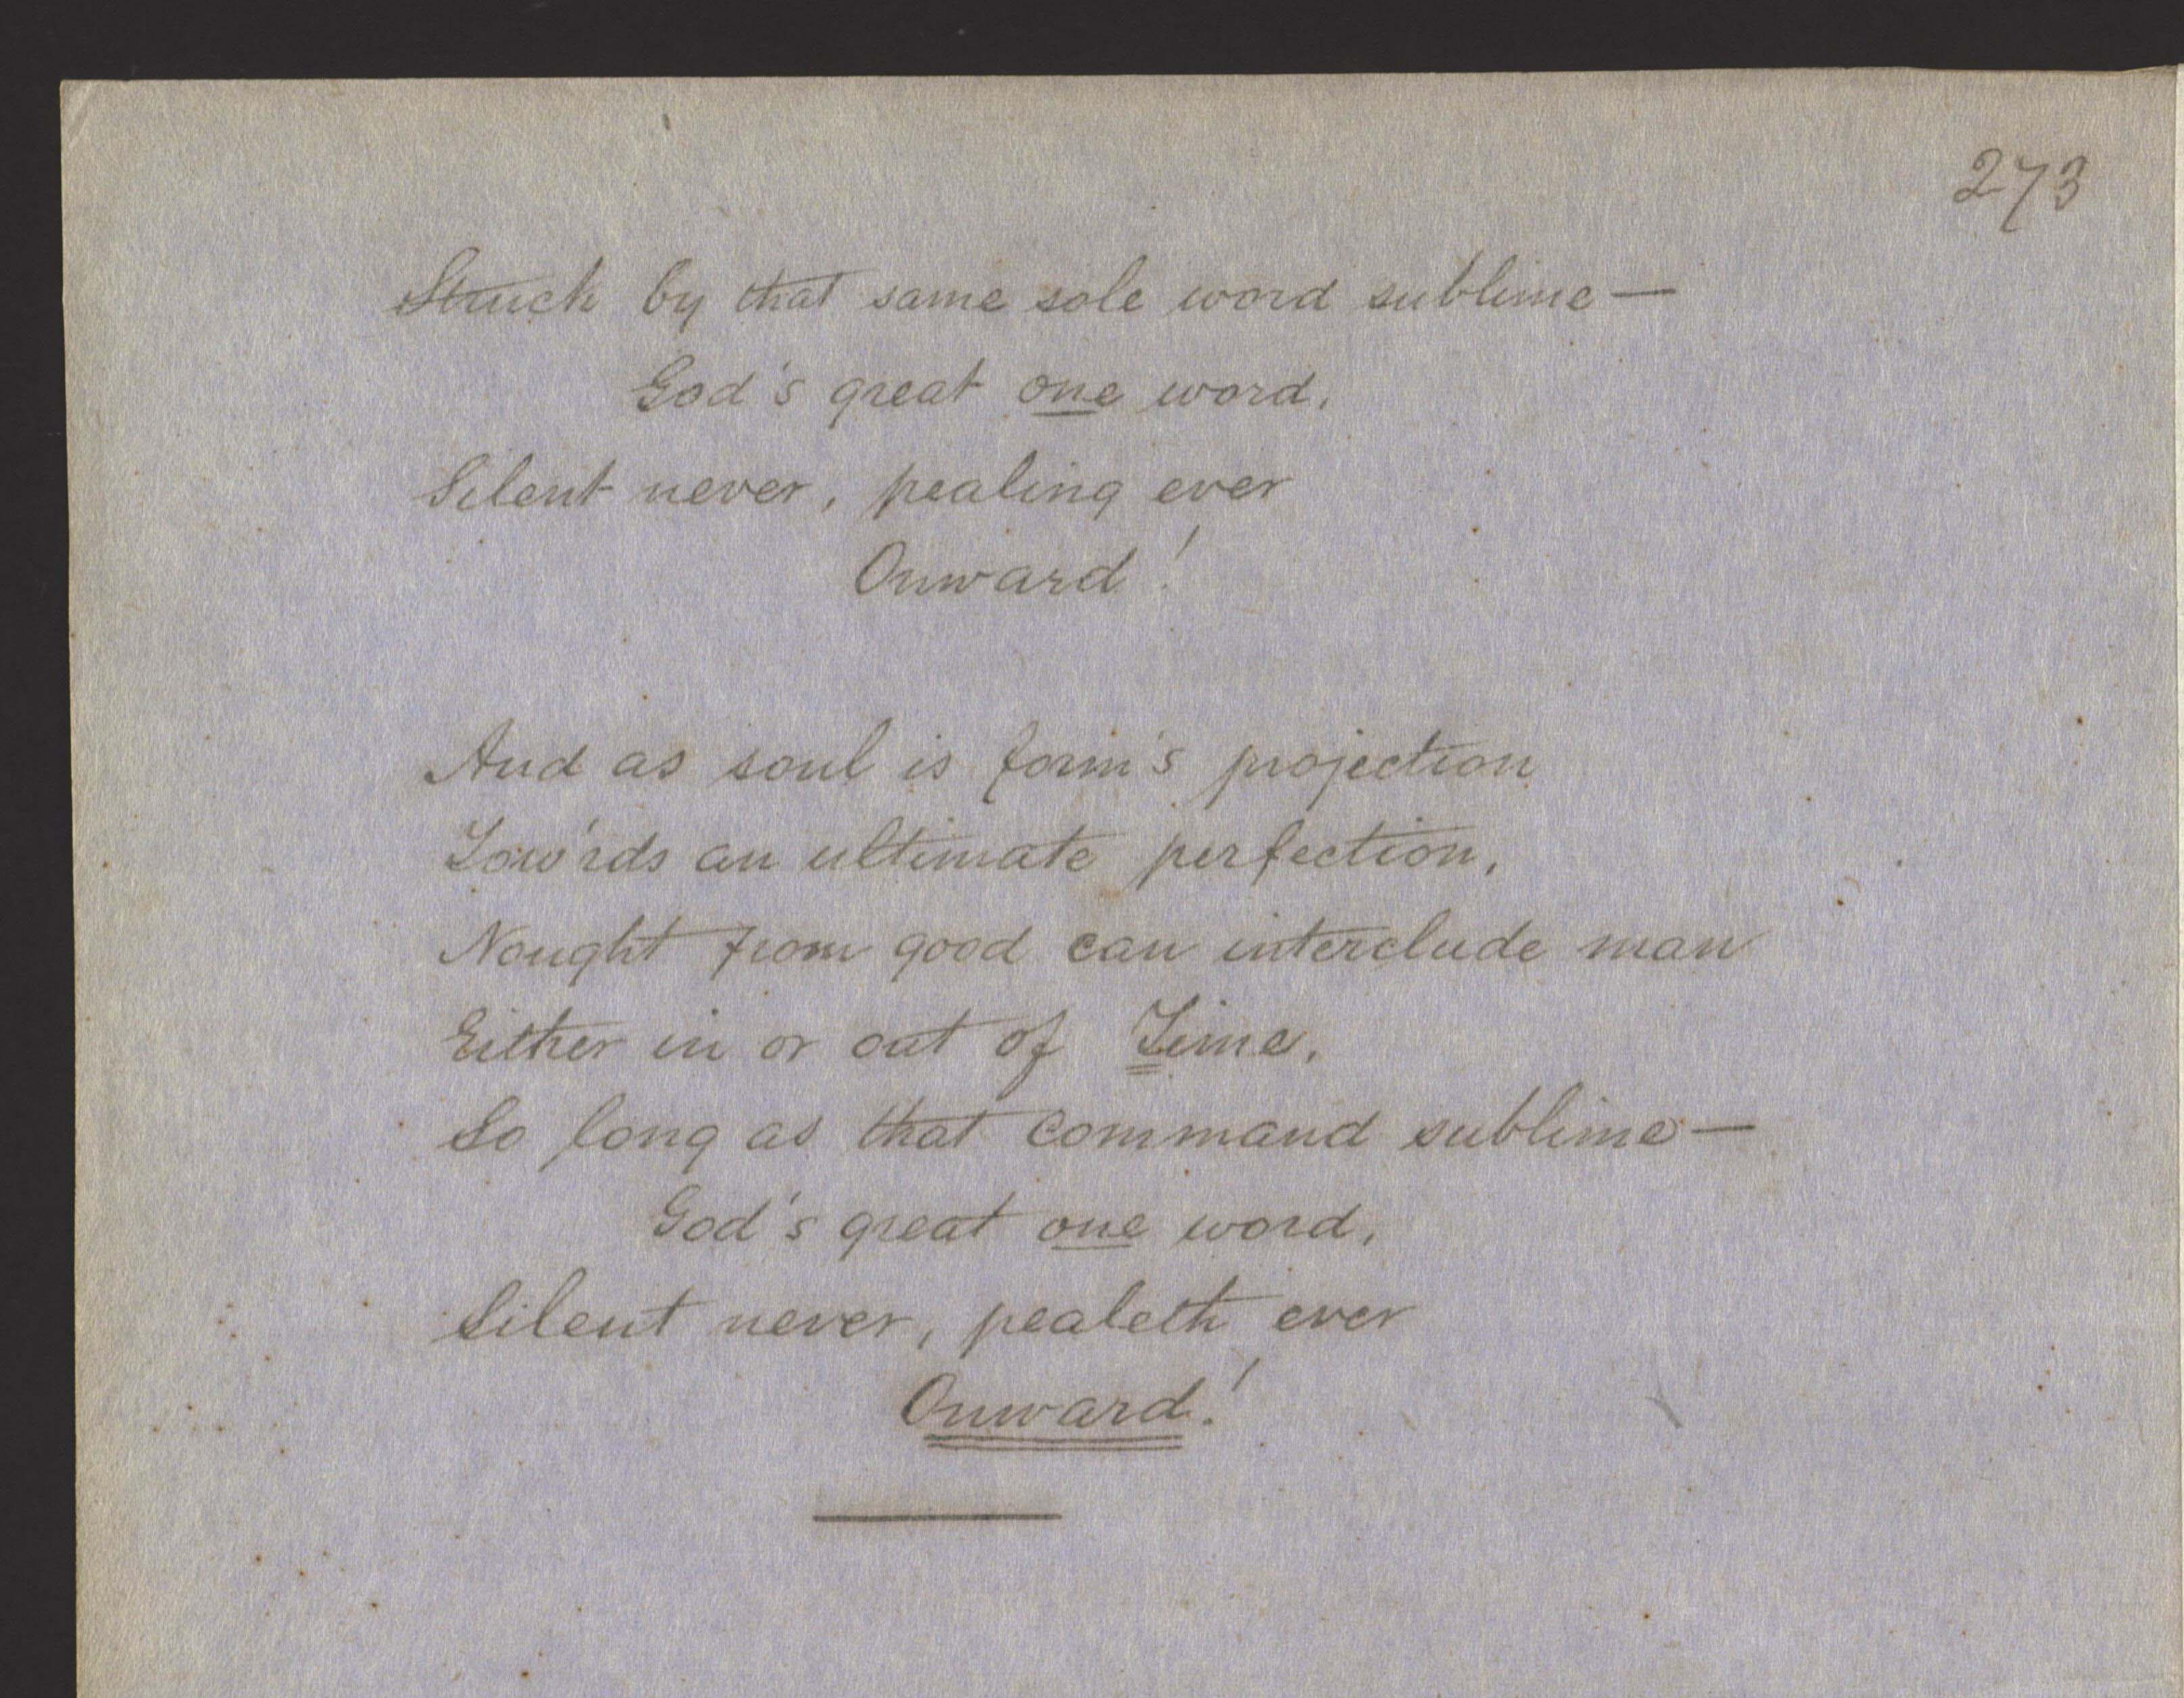 273
Struck by that same sole word sublime—
God's great one word,
Silent never, pealing ever
Onward!
And as soul is form's projection
Tow'rds an ultimate perfection,
Nought from good can interclude man
Either in or out of Time,
So long as that command sublime—
God's great one word,
Silent never, pealeth ever
Onward!